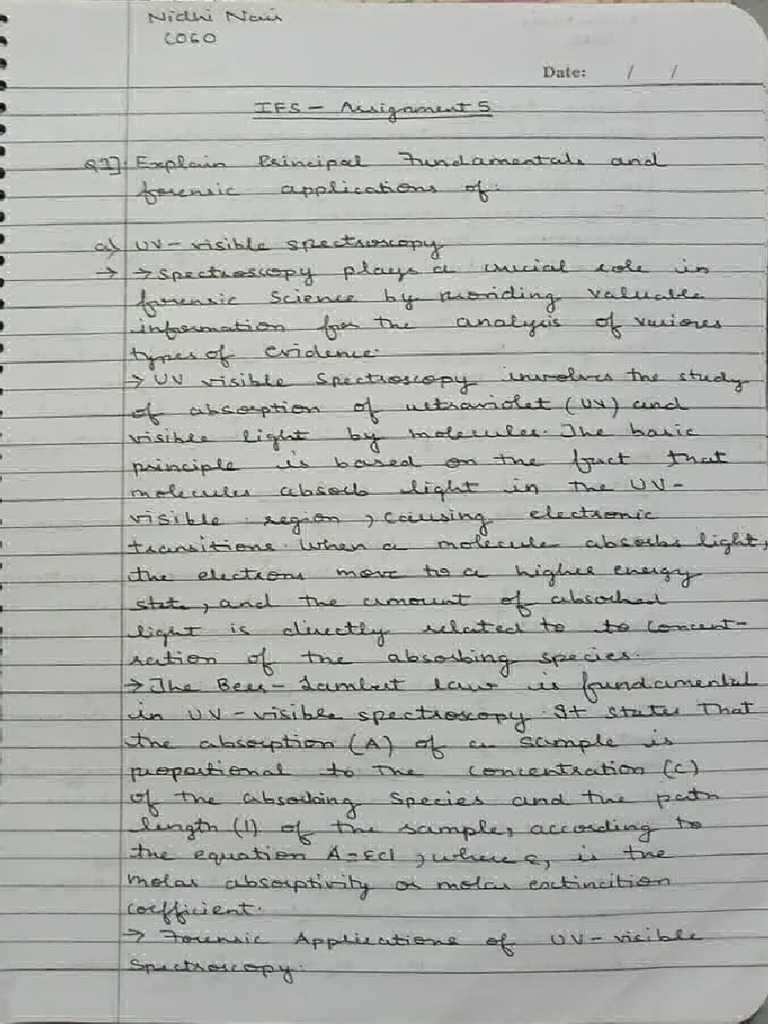 Nidhi Nair
C060
Date: / /
IFS - Assignment 5
Q1] Explain Principal Fundamentals and
forensic applications of:
a) UV-visible spectroscopy
→ → Spectroscopy plays a crucial role in
forensic Science by providing valuable
information for the analysis of various
types of evidence.
→ UV visible Spectroscopy involves the study
of absorption of ultraviolet (UV) and
visible light by molecules. The basic
principle is based on the fact that
molecules absorb light in the UV-
visible region, causing electronic
transitions. When a molecule absorbs light,
the electrons move to a higher energy
state, and the amount of absorbed
light is directly related to to concent-
ration of the absorbing species.
→ The Beer-Lambert law is fundamental
in UV-visible spectroscopy. It states that
the absorption (A) of a sample is
proportional to the concentration (C)
of the absorbing species and the path
length (l) of the sample, according to
the equation A=εcl, where ε, is the
molar absorptivity or molar extincition
coefficient.
→ Forensic Applications of UV-visible
Spectroscopy: